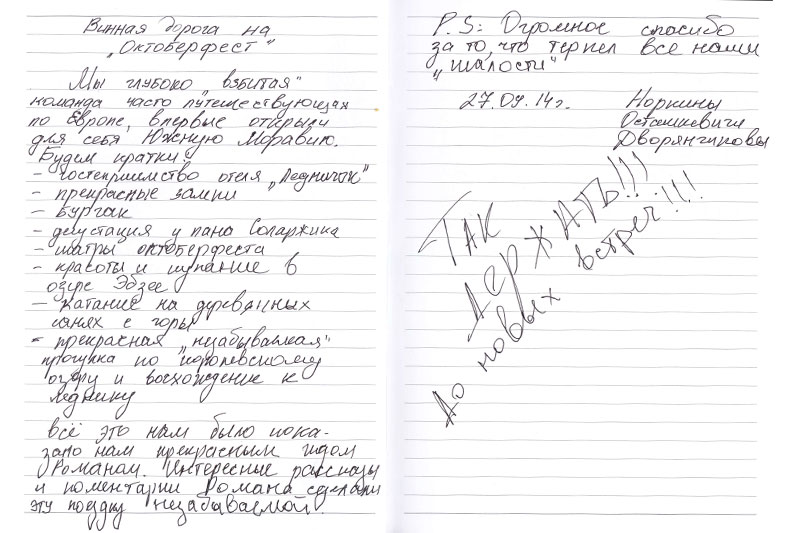 Винная дорога на
„Октоберфест"
Мы глубоко „взбитая"
команда часто путешествующая
по Европе, впервые открыли
для себя Южную Моравию.
Будем кратки:
- гостеприимство отеля „Ледничек"
- прекрасные замки
- бурчак
- дегустация у пана Соларжика
- шатры октоберфеста
- красоты и купание в
озере Эбзее
- катание на деревянных
санях с горы
- прекрасная „незабываемая"
прогулка по королевскому
озеру и восхождение к
леднику
всё это нам было пока-
зано нам прекрасным гидом
Романом. Интересные рассказы
и коментарии Романа сделали
эту поездку незабываемой.
P.S: Огромное спасибо
за то, что терпел все наши
„шалости"
27.09.14г. Норкины
Осташкевичи
Дворянчиковы
ТАК
ДЕРЖАТЬ!!!
До новых встреч!!!